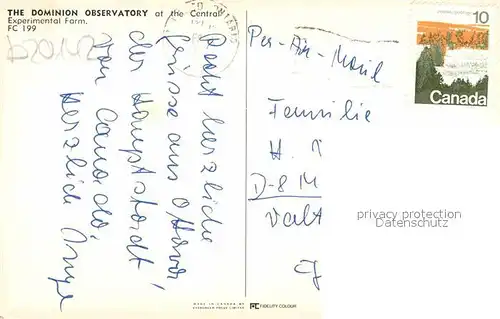 THE DOMINION OBSERVATORY at the Central
Experimental Farm.
FC 199
b20142
Recht herzliche
Grüsse aus Ottawa,
der Hauptstadt
von Canada,
Herzlich Inge
Per-Air-Mail
Familie
H.
D-8 M
Valt
10
Canada
privacy protection
Datenschutz
MADE IN CANADA BY
FC FIDELITY COLOUR